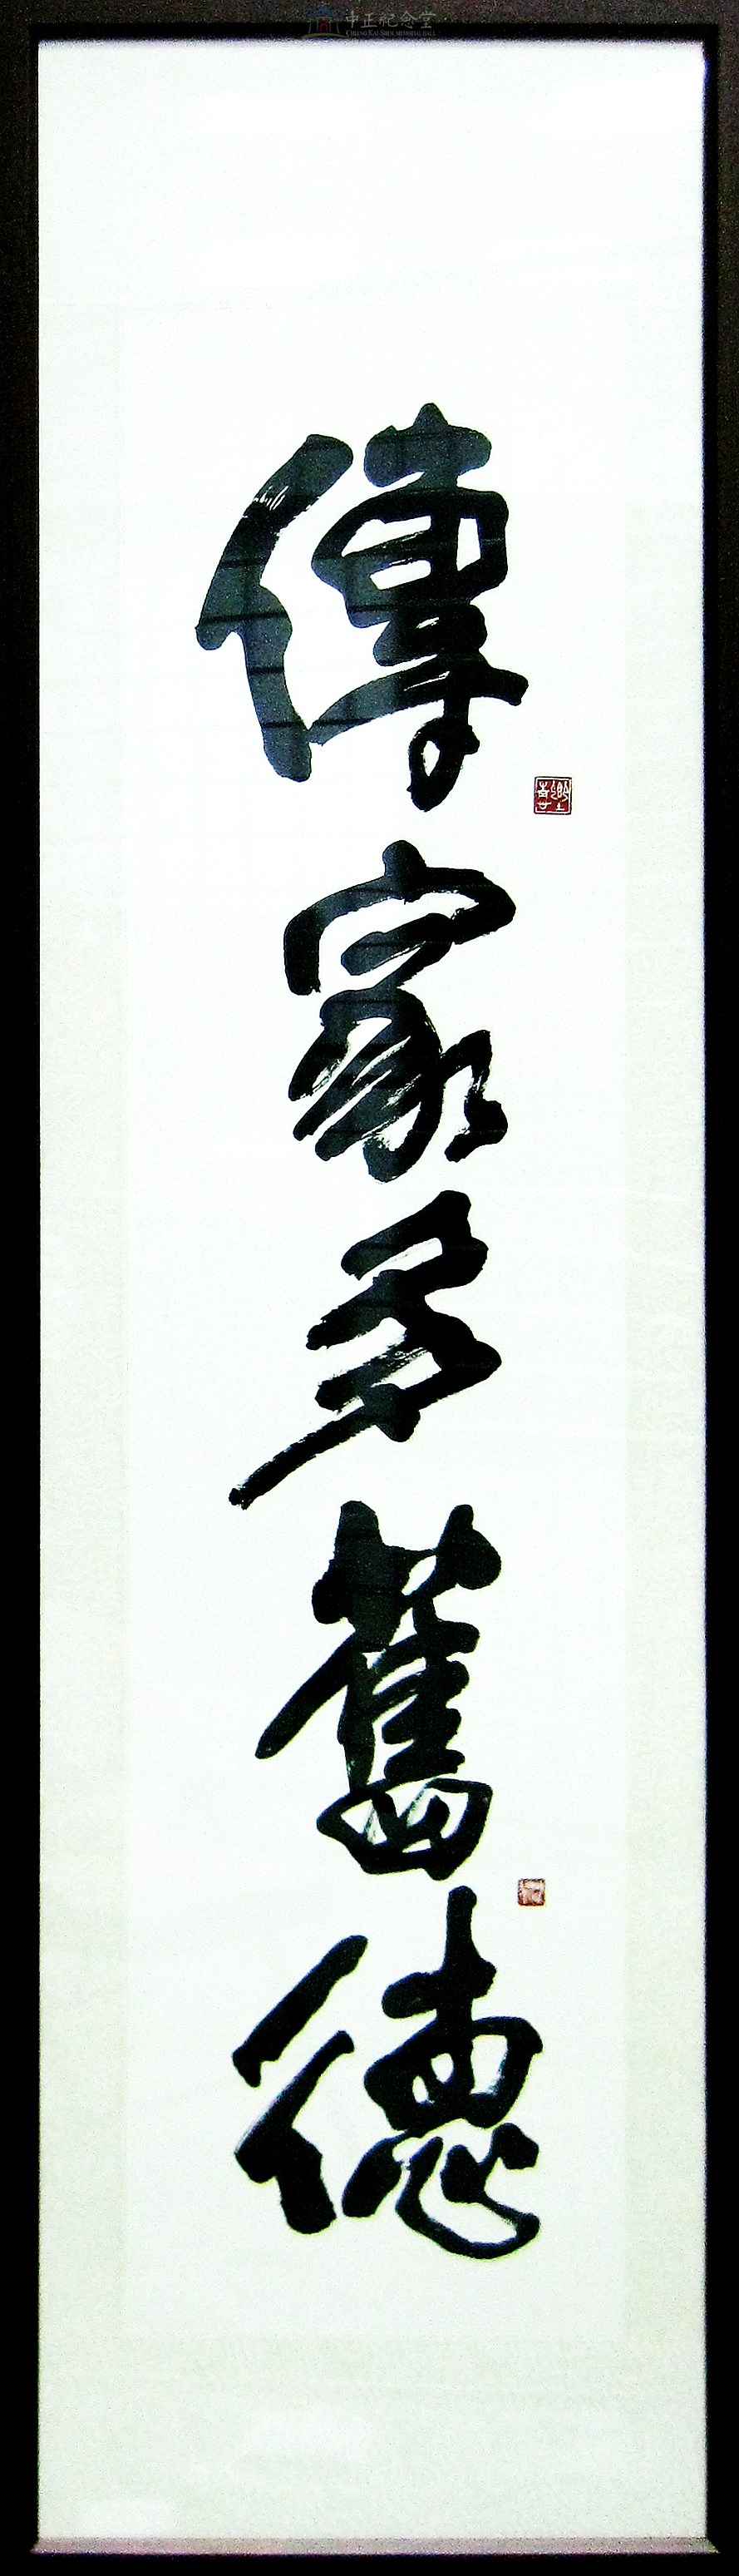 中正紀念堂
CHIANG KAI-SHEK MEMORIAL HALL
傳家多舊德